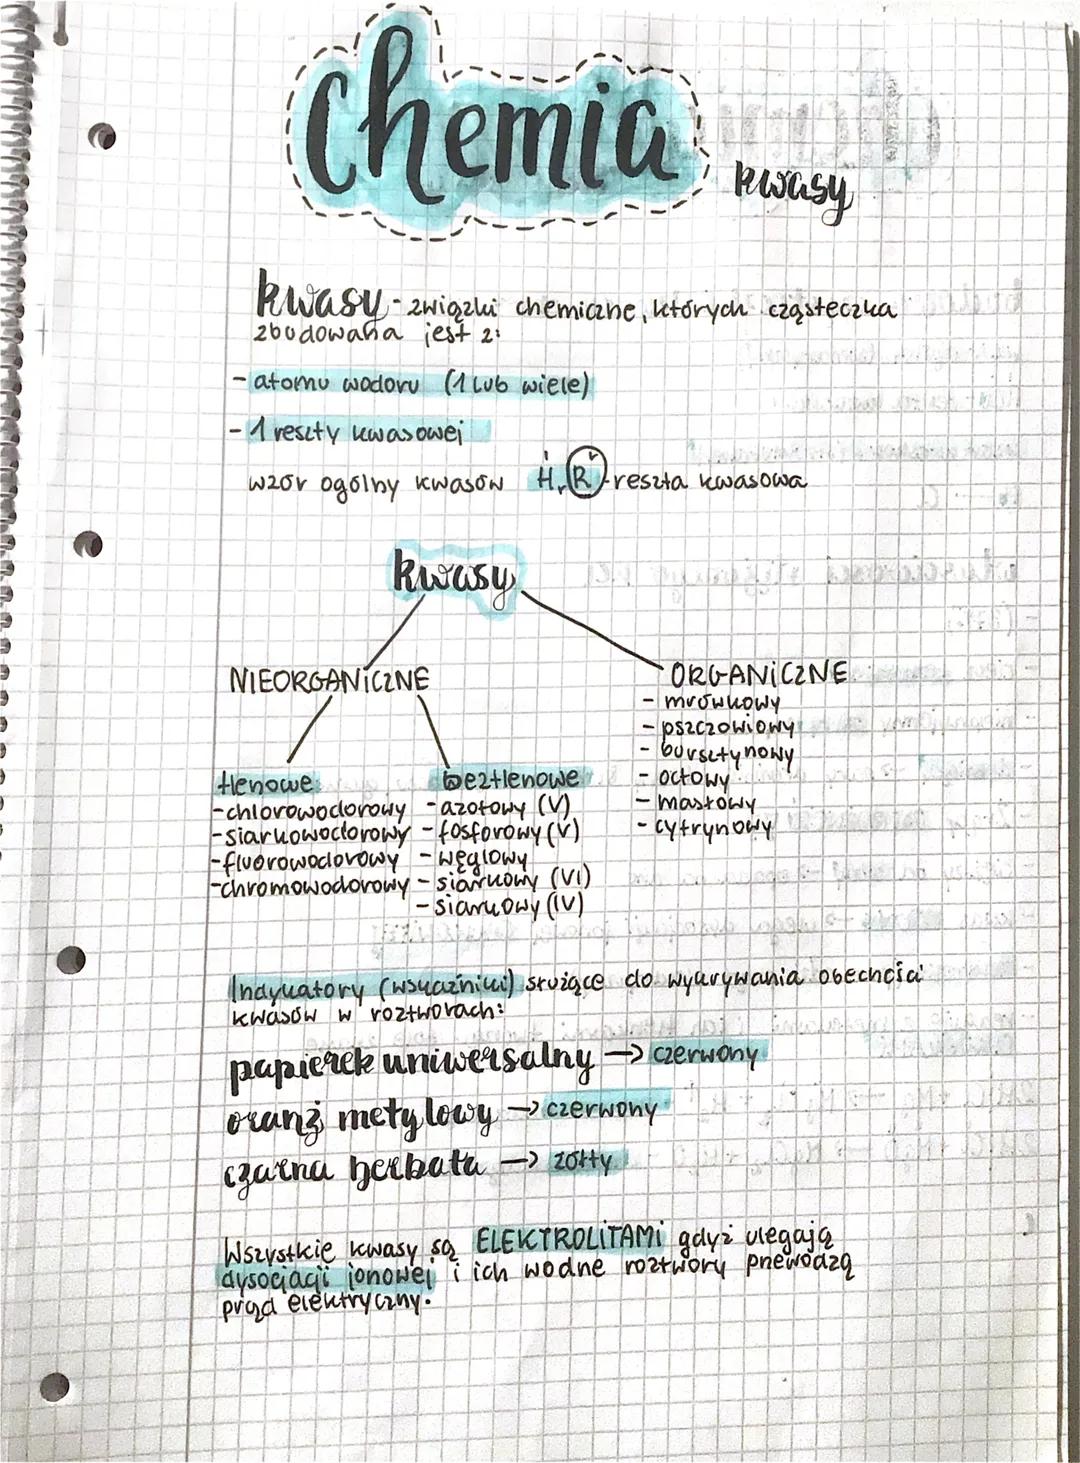 Chemia
kwasy
kwasy - związki chemiczne, których cząsteczka
zbudowana jest z:
- atomu wodoru (1 lub wiele)
- 1 reszty kwasowej
wzór ogólny kwasów HᵣR - reszta kwasowa
kwasy
NIEORGANICZNE
ORGANICZNE
- mrówkowy
- pszczowiowy
- bursztynowy
- octowy
- masłowy
- cytrynowy
tlenowe
- chlorowodorowy
- siarkowodorowy
- fluorowodorowy
- chromowodorowy
beztlenowe
- azotowy (V)
- fosforowy (V)
- węglowy
- siarkowy (VI)
- siarkowy (IV)
Indykatory (wskaźniki) służące do wykrywania obecności
kwasów w roztworach:
papierek uniwersalny → czerwony
oranż metylowy → czerwony
czarna herbata → żółty
Wszystkie kwasy są ELEKTROLITAMI gdyż ulegają
dysocjacji jonowej i ich wodne roztwory przewodzą
prąd elektryczny.